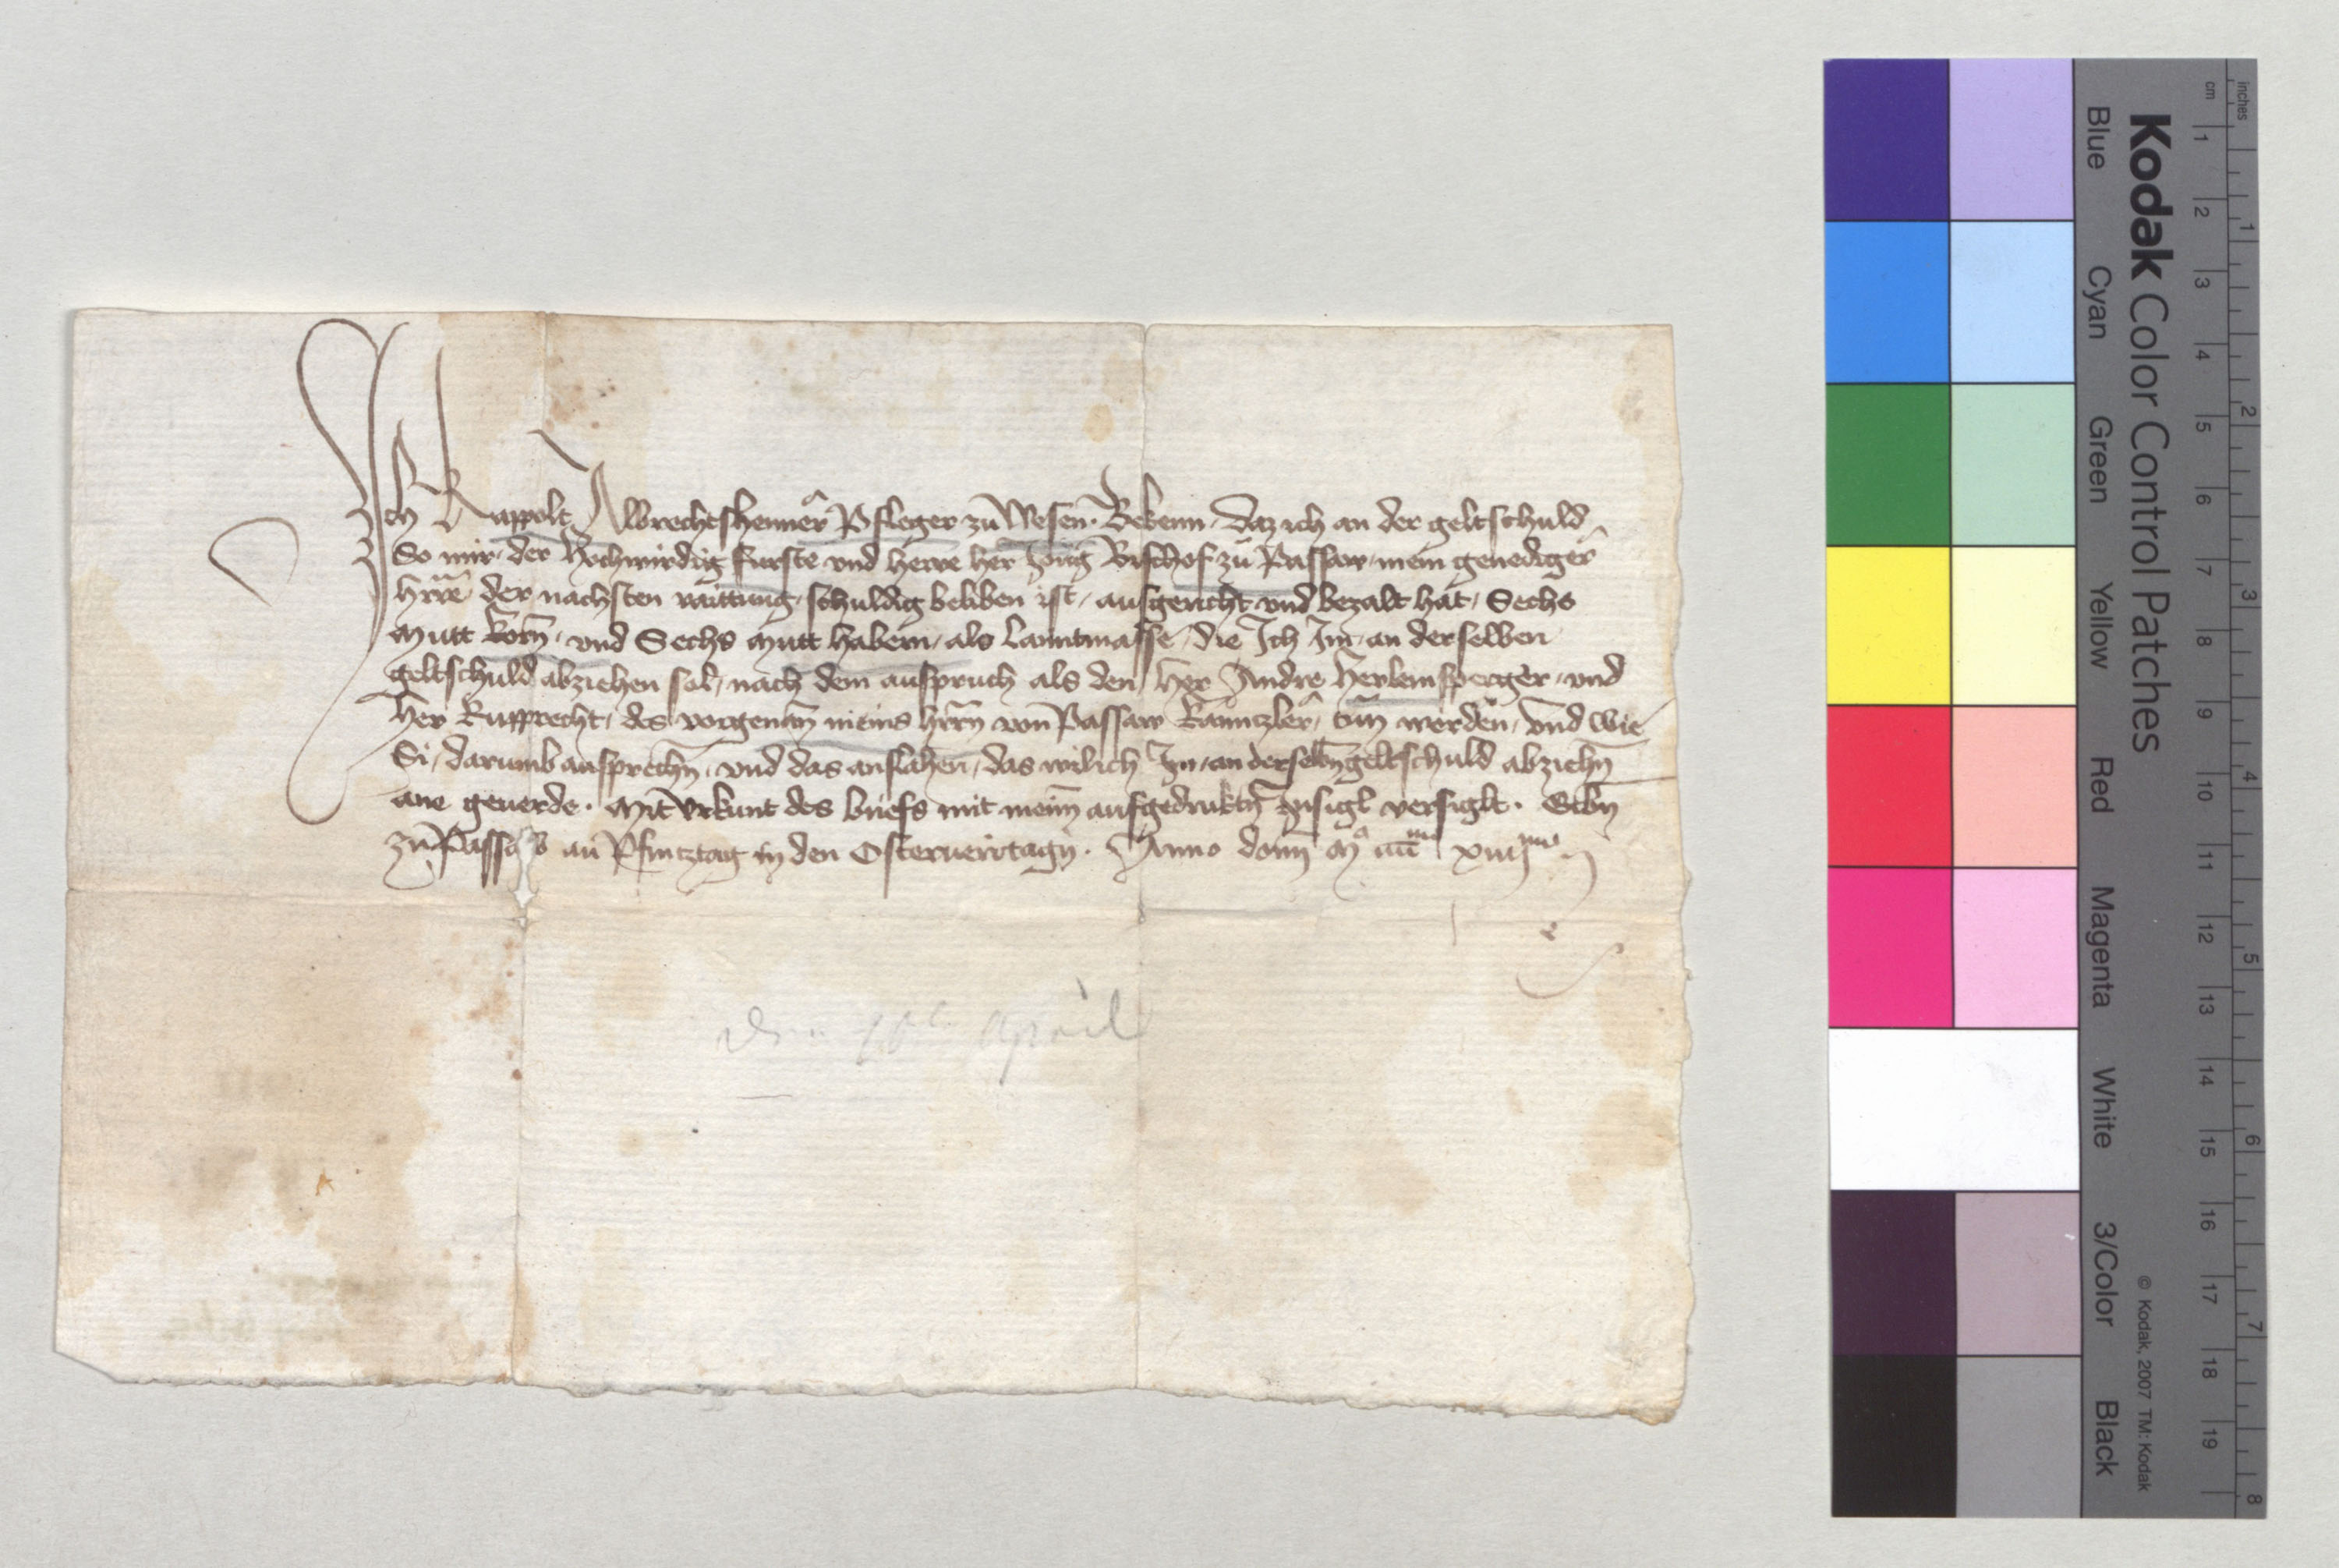 Ich Rappolt Albrechtshemer Pfleger zu Wesen. Bekenn, daz ich an der geltschuld
So mir, der Hochwirdig furste vnd herre her Jorig Bischof zu Passaw, mein genediger
hrre der nachsten raittung, schuldig beliben ist, ausgericht vnd bezalt hat, Sechs
Mutt korn, vnd Sechs Mutt habern, als lanntmasse, die Ich Im, an derselben
geltschuld abziehen sol, nach dem ausspruch als den, her Andre Herleinsperger, vnd
her Rupprecht, des vorgenan meins hrrn von Passaw kanntzler, tun werden, vnd wie
Si, darumb ausprechn, vnd das anslahen, das wil ich Im, an derselbn geltschuld abziehn
ane geuerde. Mit vrkunt des briefs mit meim aufgedruktn Insigl versiglt. Gebn
zu Passaw an Pfintztag in den Osterueirtagn. Anno domi Mo
den 10t April
Kodak Color Control Patches
Blue Cyan Green Yellow Red Magenta White 3/Color Black
© Kodak, 2007 TM: Kodak
cm 1 2 3 4 5 6 7 8 9 10 11 12 13 14 15 16 17 18 19
inches 1 2 3 4 5 6 7 8